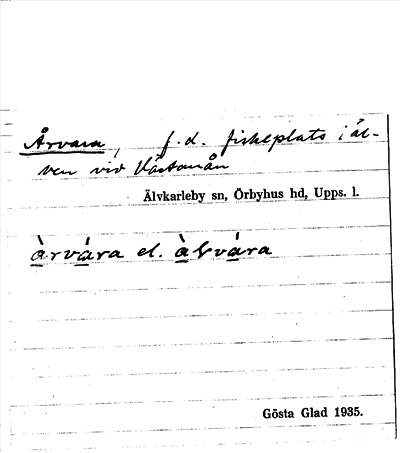 Årvara, f.d. fiskeplats i äl-
ven vid Västanån
Älvkarleby sn, Örbyhus hd, Upps. l.
àrvára el. àlvára
Gösta Glad 1935.